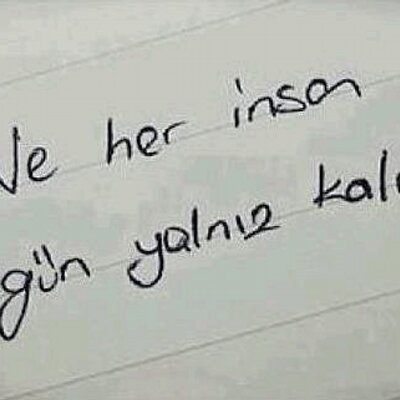 Ve her insan
gün yalnız